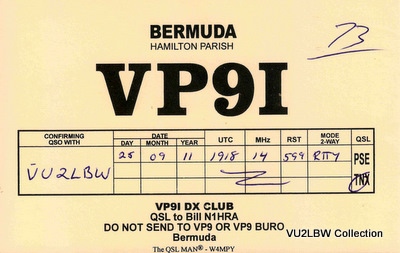 BERMUDA
HAMILTON PARISH
73
VP9I
CONFIRMING QSO WITH DATE DAY MONTH YEAR UTC MHz RST MODE 2-WAY QSL
VU2LBW 25 09 11 1918 14 599 RTTY PSE
TNX
VP9I DX CLUB
QSL to Bill N1HRA
DO NOT SEND TO VP9 OR VP9 BURO
Bermuda
The QSL MAN® - W4MPY
VU2LBW Collection